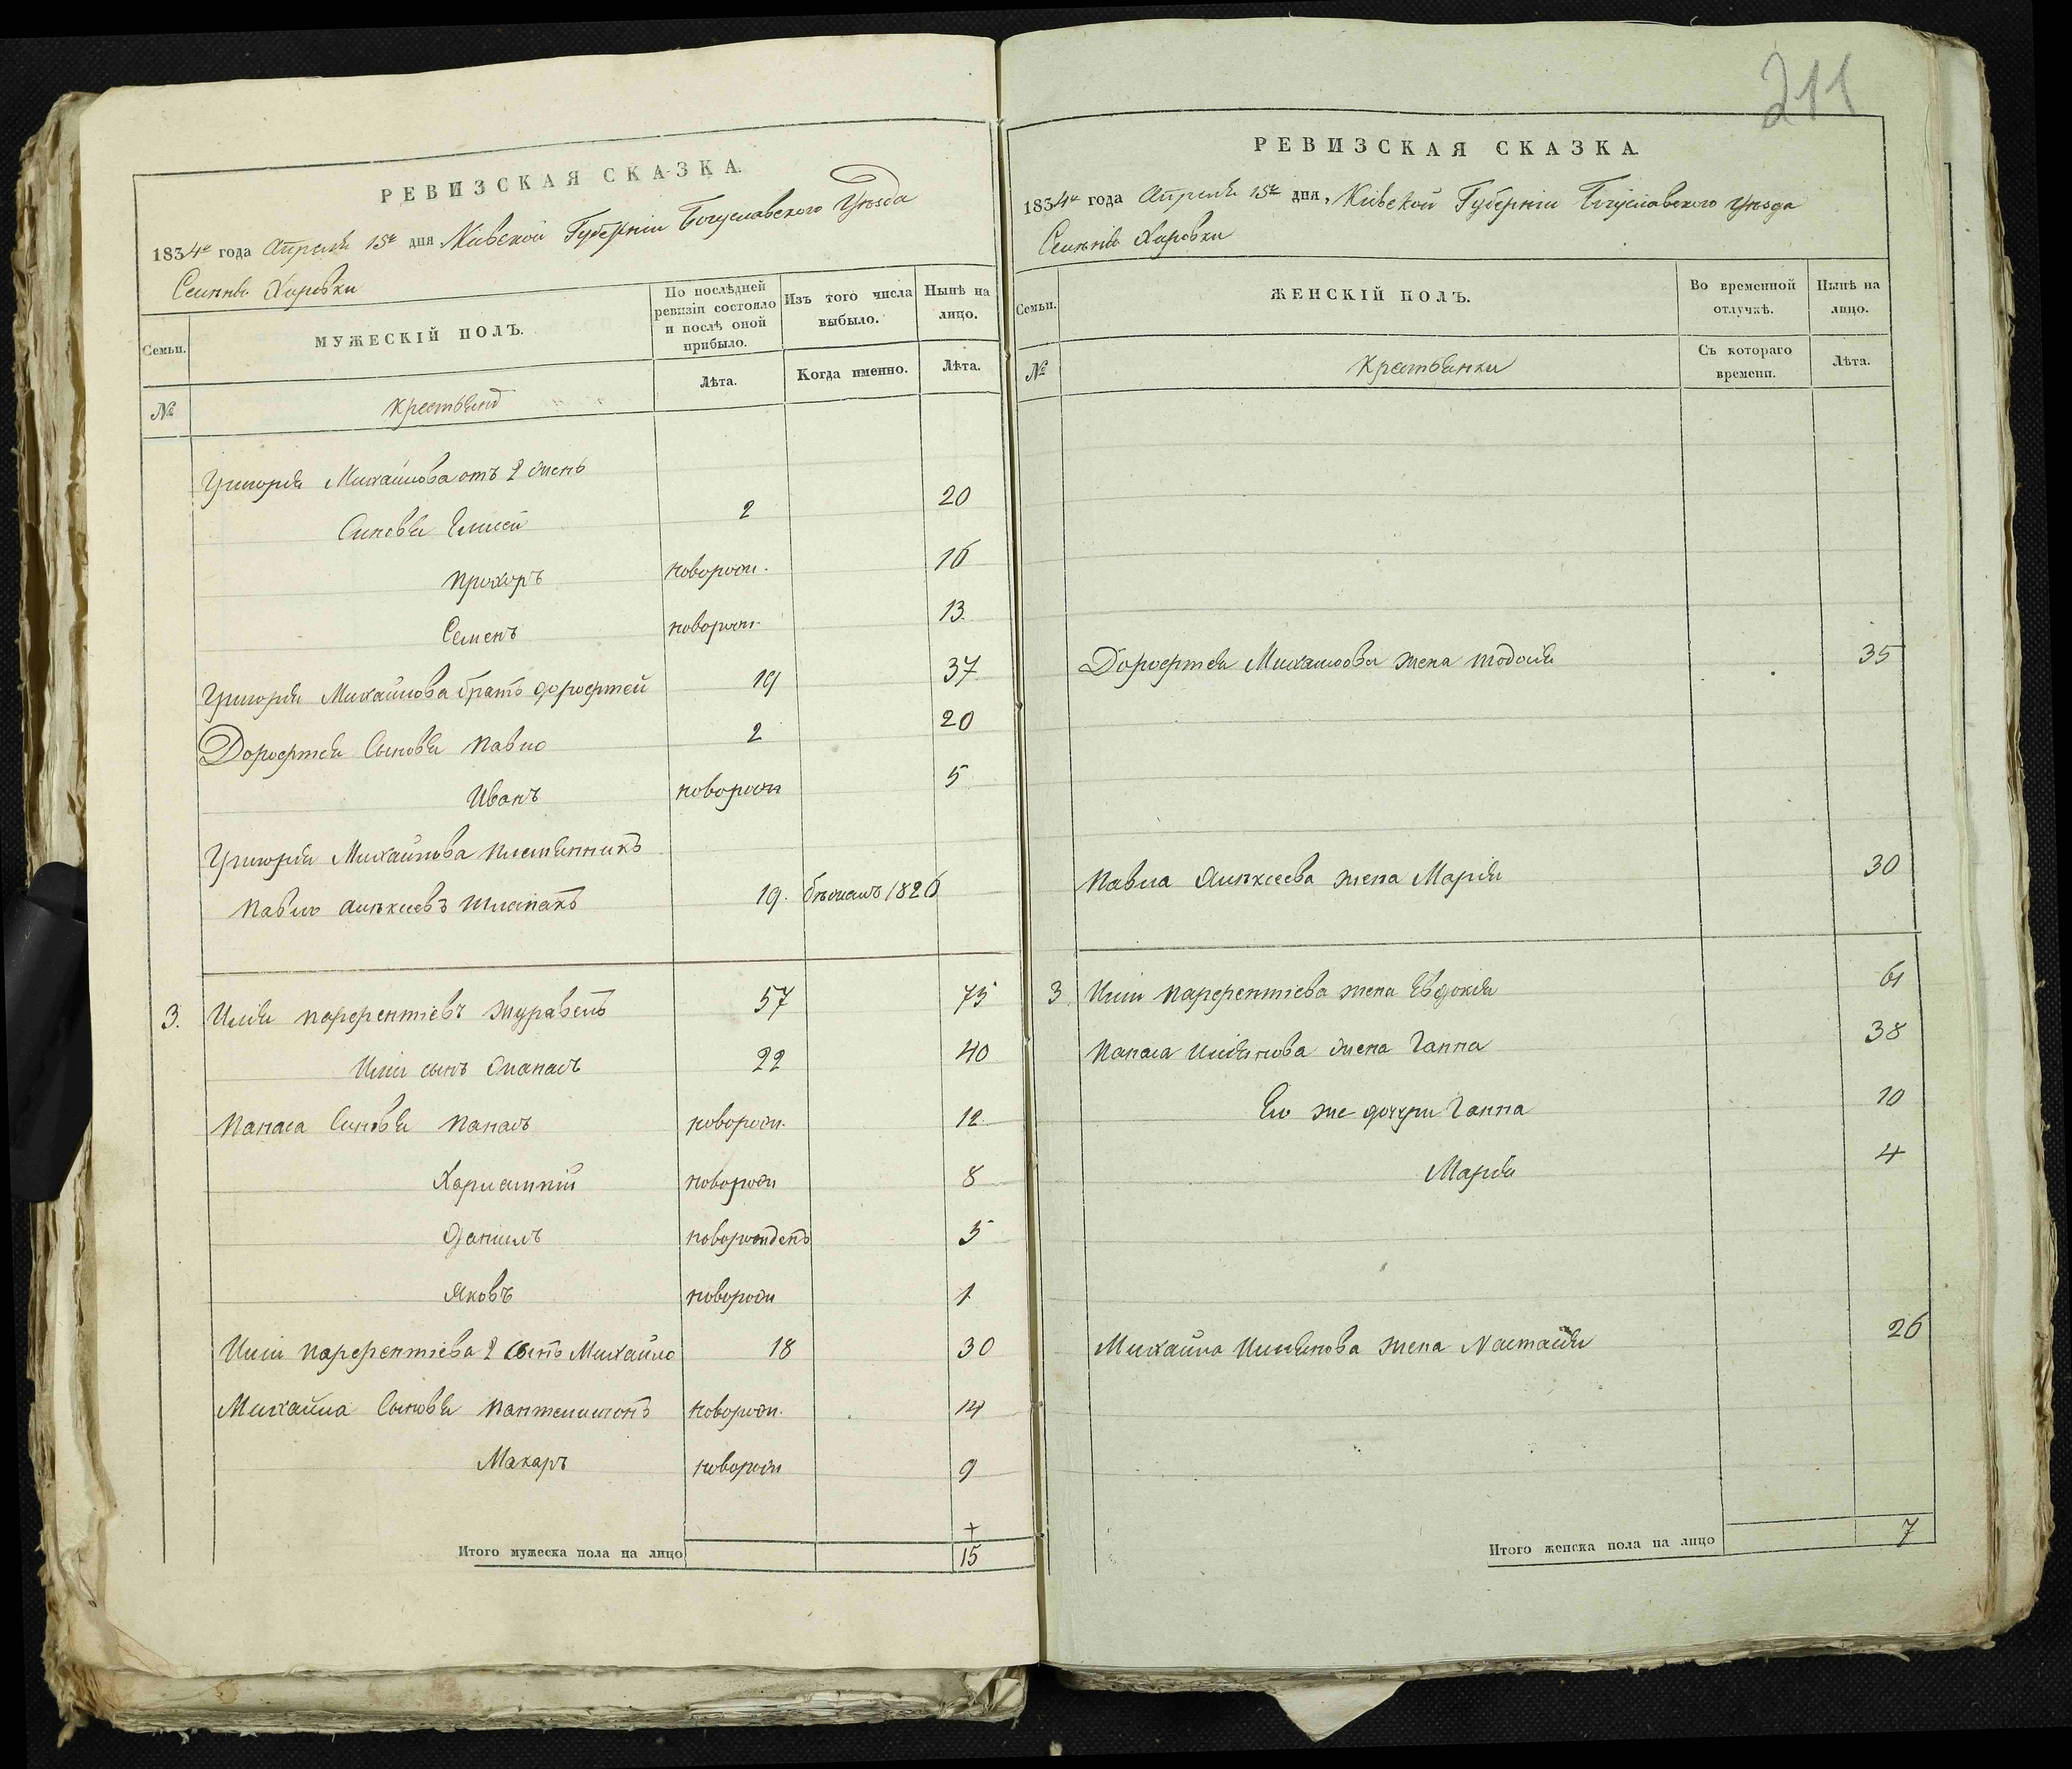 211
РЕВИЗСКАЯ СКАЗКА.
1834го года Апреля 15го дня, Кіевской Губерніи Богуславского Уѣзда
Селенія Харовки
Семьи.
МУЖЕСКІЙ ПОЛЪ.
По послѣдней ревизіи состояло и послѣ оной прибыло.
Изъ того числа выбыло.
Нынѣ на лицо.
№
крестьянѣ
Лѣта.
Когда именно.
Лѣта.
Григорія Михайлова отъ 2 жены
Синовья Елисей 2 20
Прохоръ новорож. 16
Семенъ новорож. 13
Григорія Михайлова братъ дорофтей 19 37
Дорофтея Сыновья Павло 2 20
Иванъ новорож 5
Григорія Михайлова племянникъ
Павло Алѣксѣевъ 19. бѣжалъ 1826
3. Илія парфентіевъ журавель 57 75
Иліи сынъ Опанасъ 22 40
Панаса Синовья Панасъ новорож. 12
Харлампій новорож 8
Данилъ новорожденъ 5
Яковъ новорож 1
Иліи парфентіева 2 сынъ Михайло 18 30
Михайла Сыновья пантелимонъ новорож. 14
Макаръ новорож 9
+
Итого мужеска пола на лицо 15
РЕВИЗСКАЯ СКАЗКА
1834го года Апреля 15го дня, Кіевской Губерніи Богуславского Уѣзда
Селенія Харовки
Семьи.
ЖЕНСКІЙ ПОЛЪ.
Во временной отлучкѣ.
Нынѣ на лицо.
№
Крестьянки
Съ котораго времени.
Лѣта.
Дорофтея Михайлова жена тодосія 35
Павла Алѣксеева жена Марія 30
3 Иліи парфентіева жена Евдокія 61
Панаса Иліянова жена Ганна 38
Его же дочери Ганна 10
Марія 4
Михайла Илиянова жена Настасія 26
Итого женска пола на лицо 7